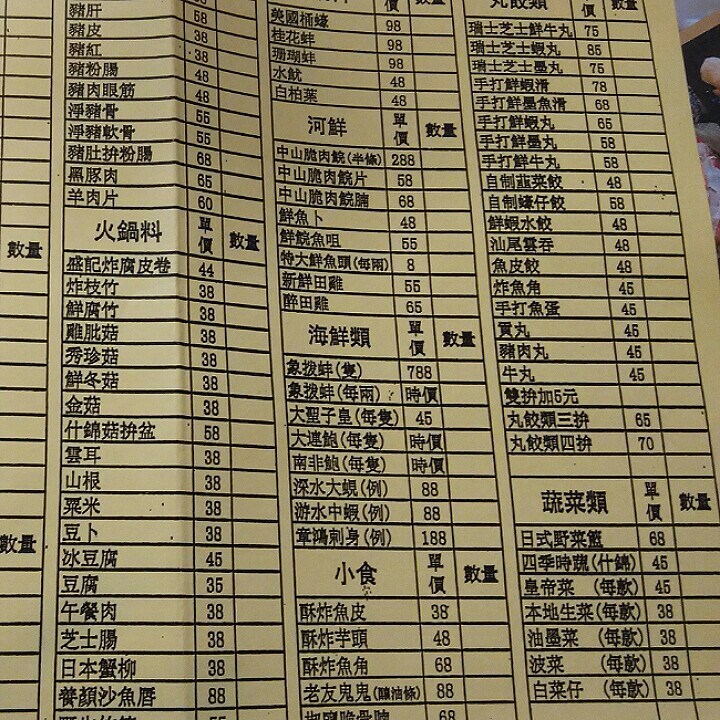 豬肝 58
豬皮 38
豬紅 38
豬粉腸 48
豬肉眼筋 48
淨豬骨 55
淨豬軟骨 55
豬肚拚粉腸 68
黑豚肉 65
羊肉片 60
火鍋料 單價 數量
盛記炸腐皮卷 44
炸枝竹 38
鮮腐竹 38
雞肶菇 38
秀珍菇 38
鮮冬菇 38
金菇 38
什錦菇拚盆 58
雲耳 38
山根 38
粟米 38
豆卜 38
冰豆腐 45
豆腐 35
午餐肉 38
芝士腸 38
日本蟹柳 38
養顏沙魚唇 88
數量
數量
價 數量
美國桶蠔 98
桂花蚌 98
珊瑚蚌 98
水魷 48
白柏葉 48
河鮮 單價 數量
中山脆肉鯇(半條) 288
中山脆肉鯇片 58
中山脆肉鯇腩 68
鮮魚卜 48
鮮鯇魚咀 55
特大鮮魚頭(每兩) 8
新鮮田雞 55
醉田雞 65
海鮮類 單價 數量
象拔蚌(隻) 788
象拔蚌(每兩) 時價
大聖子皇(每隻) 45
大連鮑(每隻) 時價
南非鮑(每隻) 時價
深水大蜆(例) 88
游水中蝦(例) 88
章鴻刺身(例) 188
小食 單價 數量
酥炸魚皮 38
酥炸芋頭 48
酥炸魚角 68
老友鬼鬼(釀油條) 88
椒鹽脆骨腩 68
丸餃類 單價 數量
瑞士芝士鮮牛丸 75
瑞士芝士蝦丸 85
瑞士芝士墨丸 75
手打鮮蝦滑 78
手打鮮墨魚滑 68
手打鮮蝦丸 65
手打鮮墨丸 58
手打鮮牛丸 58
自制韮菜餃 48
自制蠔仔餃 58
鮮蝦水餃 48
汕尾雲吞 48
魚皮餃 48
炸魚角 45
手打魚蛋 45
貢丸 45
豬肉丸 45
牛丸 45
雙拚加5元
丸餃類三拚 65
丸餃類四拚 70
蔬菜類 單價 數量
日式野菜籃 68
四季時蔬(什錦) 45
皇帝菜 (每欵) 45
本地生菜(每欵) 38
油墨菜 (每欵) 38
菠菜 (每欵) 38
白菜仔 (每欵) 38